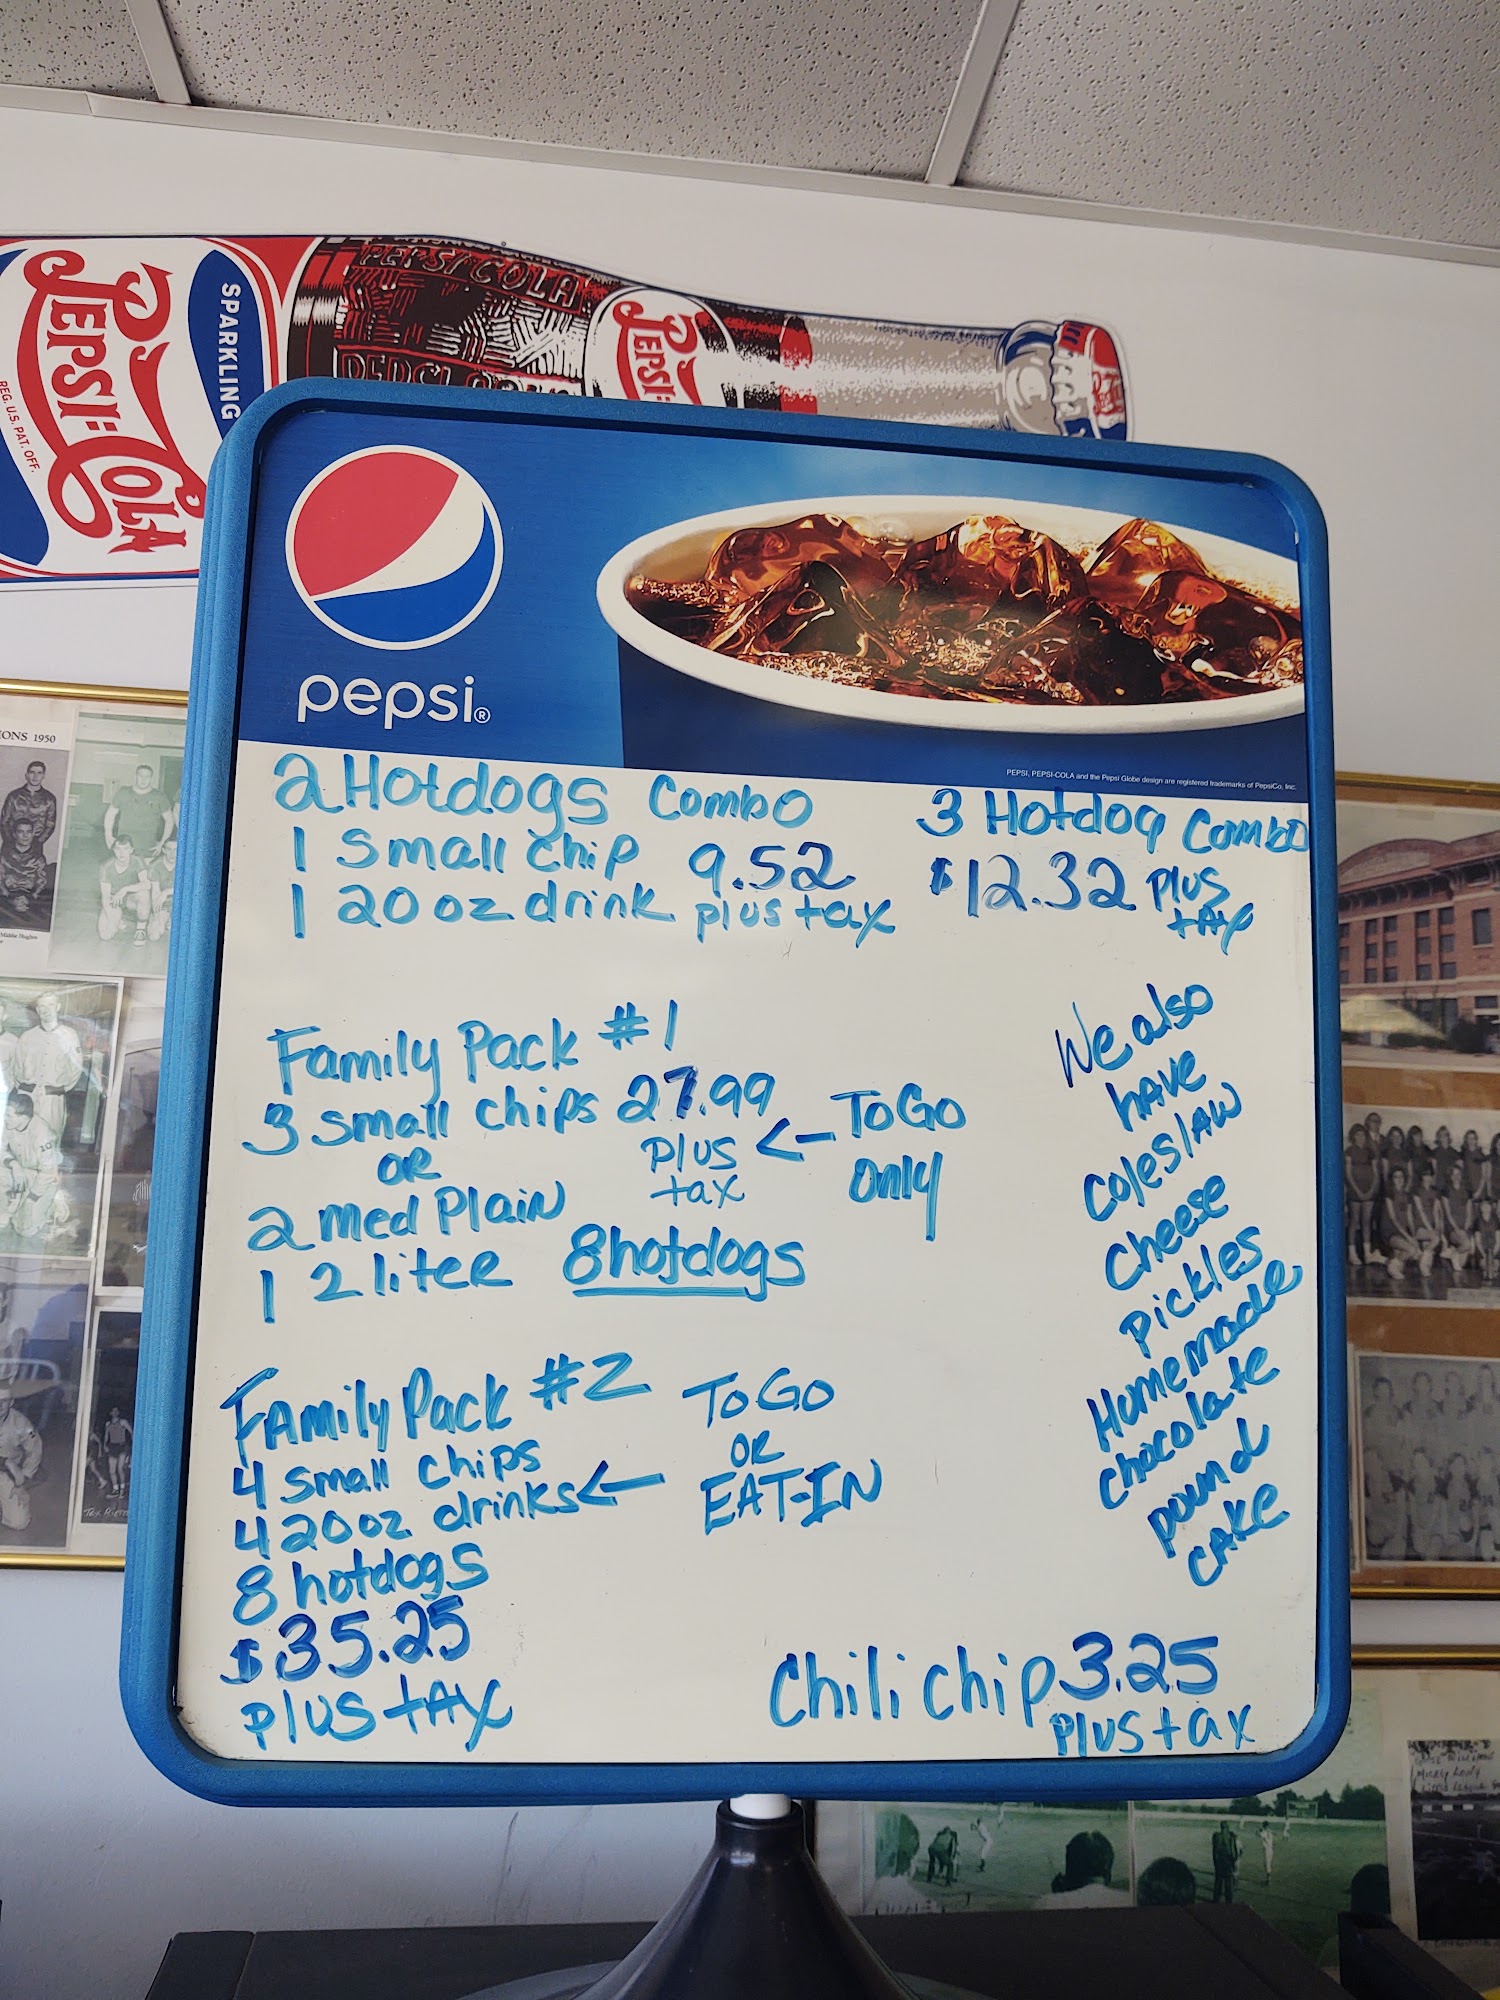 PEPSI-COLA
SPARKLING
REG. U.S. PAT. OFF.
PEPSI COLA
PEPSI
pepsi®
PEPSI, PEPSI-COLA and the Pepsi Globe design are registered trademarks of PepsiCo, Inc.
2 Hotdogs Combo
1 Small chip 9.52
1 20 oz drink plus tax
3 Hotdog Combo
$12.32 plus
tax
Family Pack #1
3 small chips 27.99
plus
tax
← To Go
only
OR
2 med Plain
1 2 liter 8 hotdogs
Family Pack #2
4 small chips
4 20 oz drinks ←
To Go
OR
EAT-IN
8 hotdogs
$35.25
plus tax
We also
have
coleslaw
cheese
pickles
Homemade
chocolate
pound
cake
Chili chip 3.25
plus tax
IONS 1950